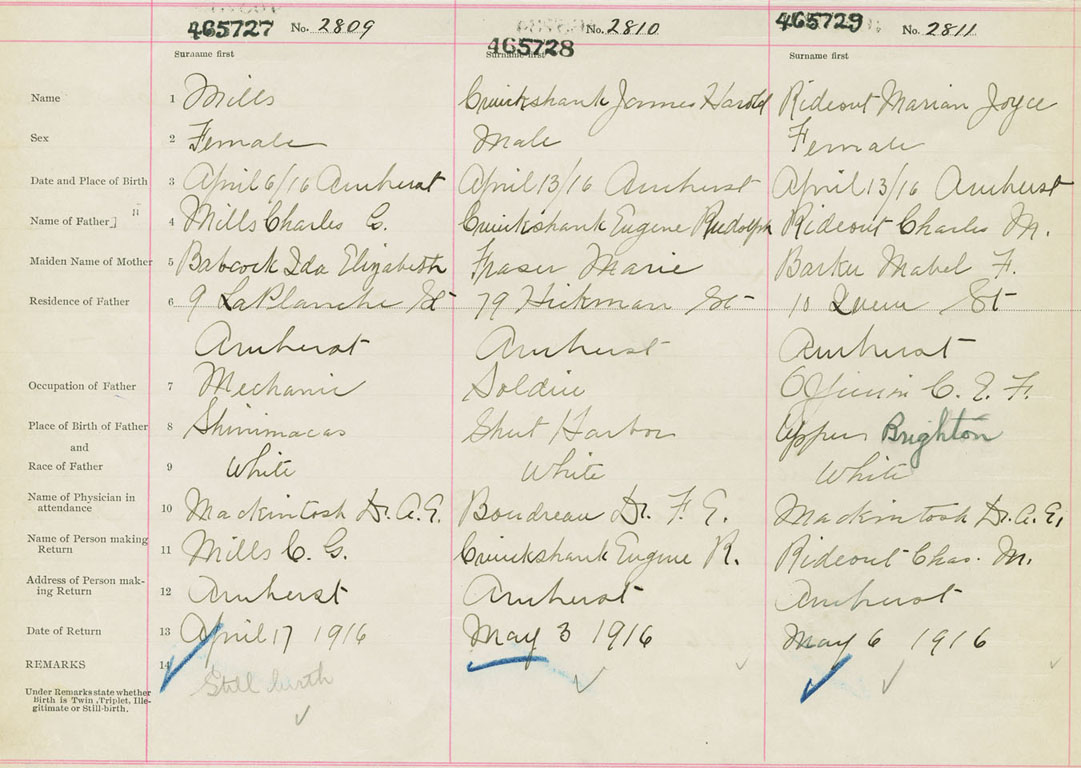 465727 No. 2809 465728 No. 2810 465729 No. 2811
Surname first Surname first Surname first
Name 1 Mills Cruickshank James Harold Rideout Marian Joyce
Sex 2 Female Male Female
Date and Place of Birth 3 April 6/16 Amherst April 13/16 Amherst April 13/16 Amherst
Name of Father 4 Mills Charles G. Cruickshank Eugene Rudolph Rideout Charles M.
Maiden Name of Mother 5 Babcock Ida Elizabeth Fraser Marie Barker Mabel F.
Residence of Father 6 9 LaPlanche St 79 Hickman St 10 Queen St
Amherst Amherst Amherst
Occupation of Father 7 Mechanic Soldier Officer C. E. F.
Place of Birth of Father 8 Shinimacas Sheet Harbor Upper Brighton
and
Race of Father 9 White White White
Name of Physician in
attendance 10 Mackintosh Dr. A. E. Boudreau Dr. F. E. Mackintosh Dr. A. E.
Name of Person making
Return 11 Mills C. G. Cruickshank Eugene R. Rideout Chas. M.
Address of Person mak-
ing Return 12 Amherst Amherst Amherst
Date of Return 13 April 17 1916 May 3 1916 May 6 1916
REMARKS 14 Still birth
Under Remarks state whether
Birth is Twin, Triplet, Ille-
gitimate or Still-birth.